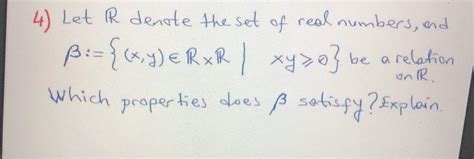 4) Let ℝ denote the set of real numbers, and
β := {(x,y) ∈ ℝ×ℝ | xy ⩾ 0} be a relation
on ℝ.
Which properties does β satisfy? Explain.